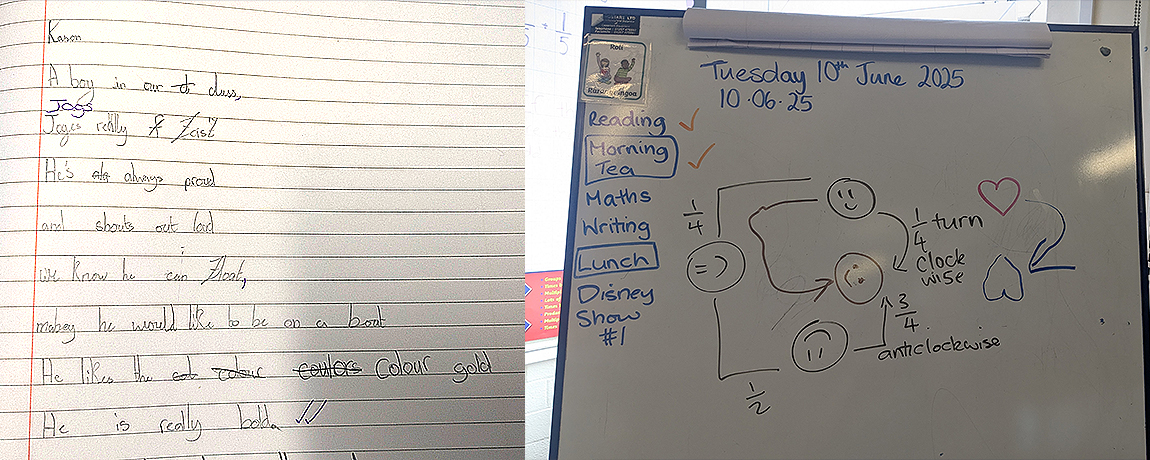 Kason
A boy in our class,
Jogs
Joges really fast
He's always proud
and shouts out loud
we know he can float,
mabey he would like to be on a boat
He likes the colour coulors colour gold
He is really bold.
1/5
Roli
Tuesday 10th June 2025
10.06.25
Reading
Morning
Tea
Maths
Writing
Lunch
Disney
Show
#1
1/4
1/4 turn
clock
wise
=)
3/4
anticlockwise
1/2